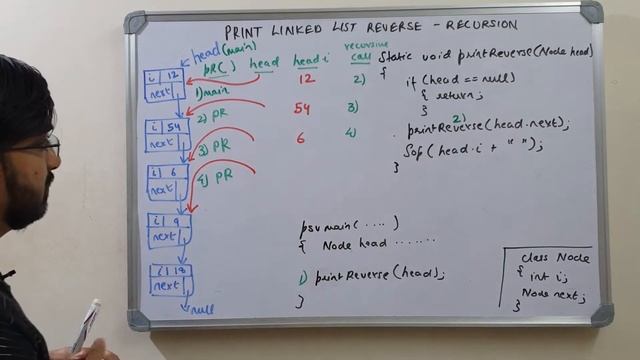 PRINT LINKED LIST REVERSE - RECURSION
head(main)
pR( ) head head.i recursive call
1) main 12 2)
2) PR 54 3)
3) PR 6 4)
4) PR
i 12
next
i 54
next
i 6
next
i 9
next
i 18
next
null
Static void printReverse(Node head)
{
if (head == null)
{ return;
}
2)
printReverse(head.next);
Sop(head.i + " ");
}
psv main( .... )
{ Node head .......
1) printReverse(head);
}
class Node
{ int i;
Node next;
}